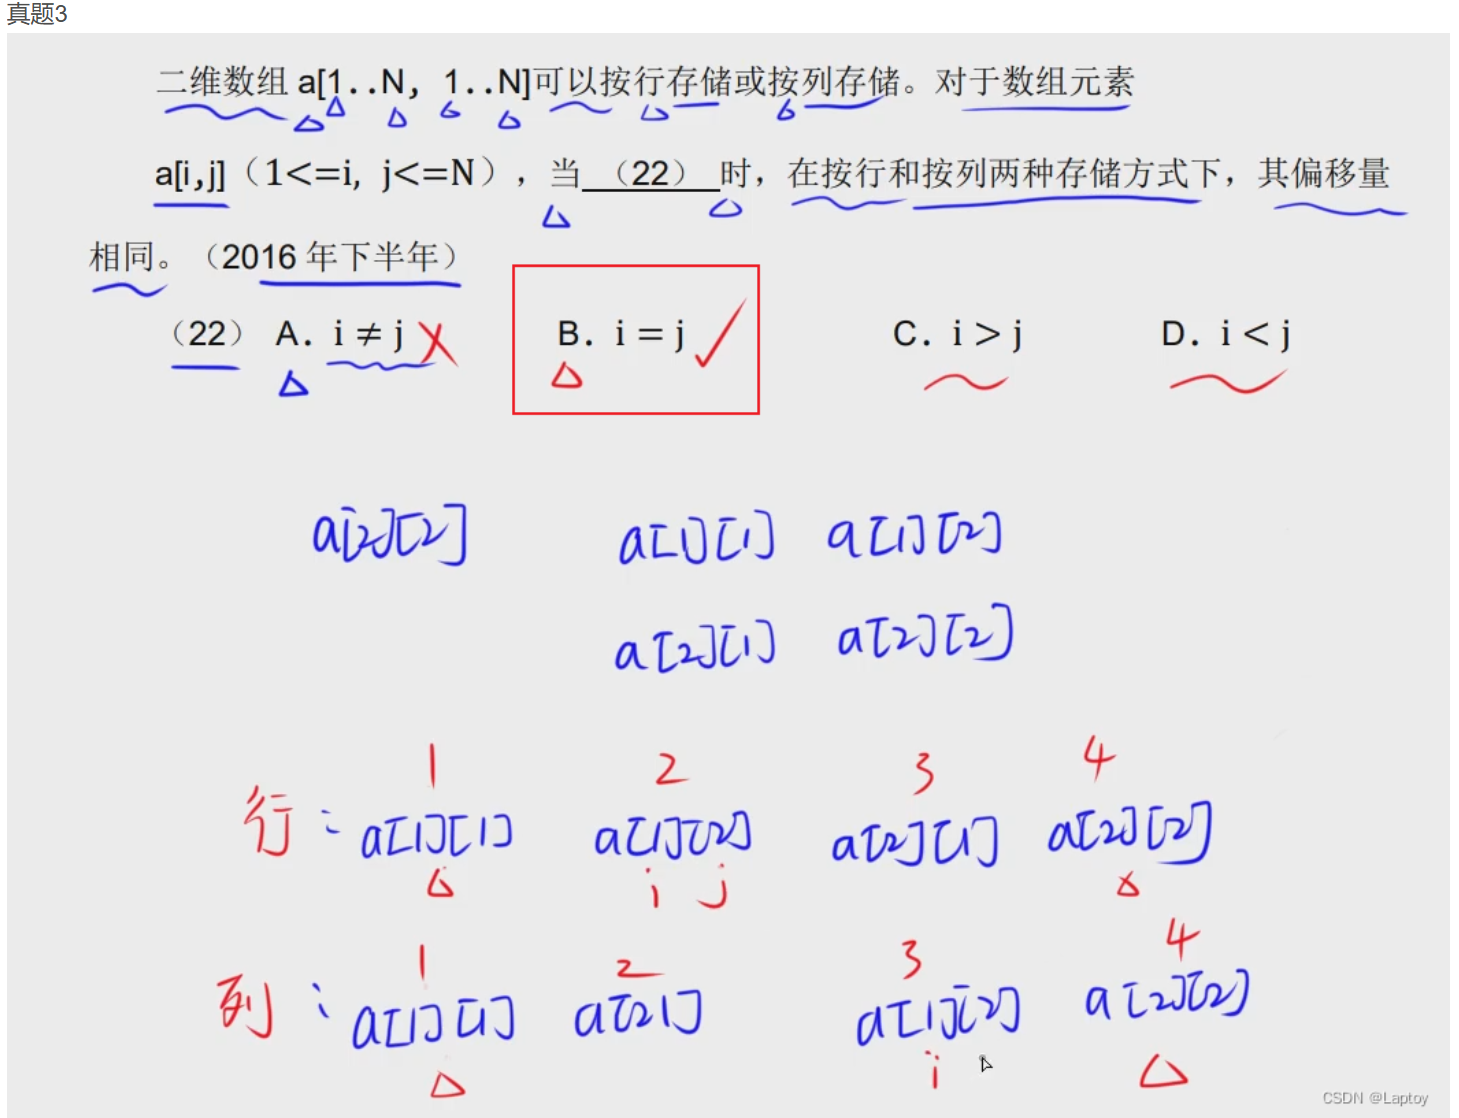 真题3
二维数组 a[1..N, 1..N]可以按行存储或按列存储。对于数组元素
a[i,j]（1<=i, j<=N），当 （22） 时，在按行和按列两种存储方式下，其偏移量
相同。（2016 年下半年）
（22） A. i ≠ j B. i = j C. i > j D. i < j
a[2][2] a[1][1] a[1][2]
a[2][1] a[2][2]
1 2 3 4
行: a[1][1] a[1][2] a[2][1] a[2][2]
i j
1 2 3 4
列: a[1][1] a[21] a[1][2] a[2][2]
i
CSDN @Laptoy